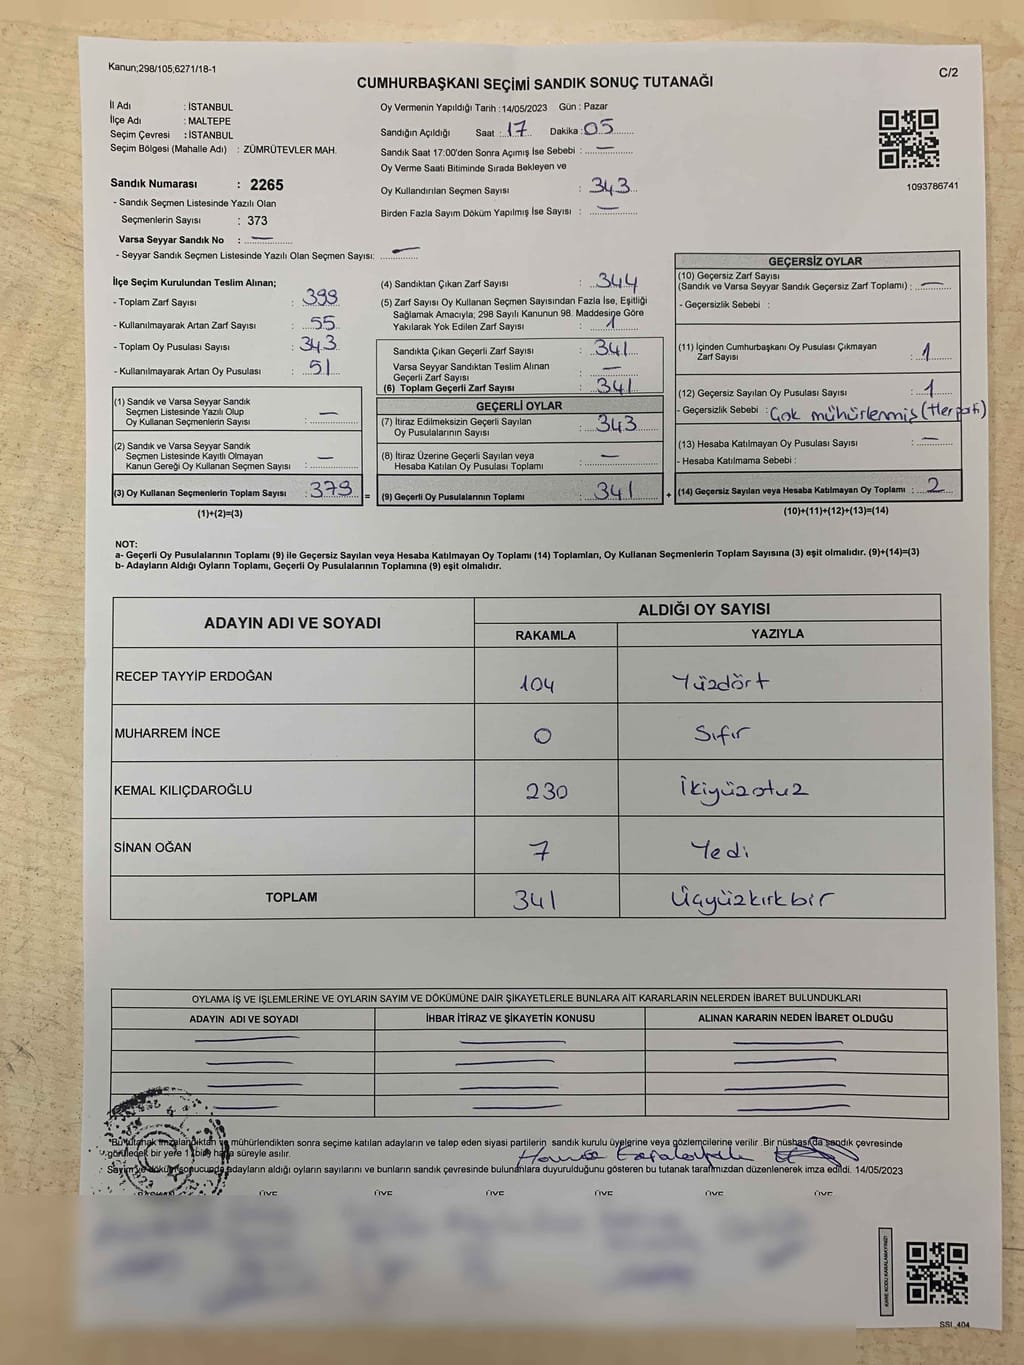 Kanun;298/105;6271/18-1
C/2
CUMHURBAŞKANI SEÇİMİ SANDIK SONUÇ TUTANAĞI
İl Adı : İSTANBUL
İlçe Adı : MALTEPE
Seçim Çevresi : İSTANBUL
Seçim Bölgesi (Mahalle Adı) : ZÜMRÜTEVLER MAH.
Sandık Numarası : 2265
- Sandık Seçmen Listesinde Yazılı Olan
Seçmenlerin Sayısı : 373
Varsa Seyyar Sandık No : —
- Seyyar Sandık Seçmen Listesinde Yazılı Olan Seçmen Sayısı: —
Oy Vermenin Yapıldığı Tarih : 14/05/2023 Gün : Pazar
Sandığın Açıldığı Saat : 17 Dakika : 05
Sandık Saat 17:00'den Sonra Açımış İse Sebebi : —
Oy Verme Saati Bitiminde Sırada Bekleyen ve
Oy Kullandırılan Seçmen Sayısı : 343
Birden Fazla Sayım Döküm Yapılmış İse Sayısı : —
1093786741
İlçe Seçim Kurulundan Teslim Alınan;
- Toplam Zarf Sayısı : 399
- Kullanılmayarak Artan Zarf Sayısı : 55
- Toplam Oy Pusulası Sayısı : 343
- Kullanılmayarak Artan Oy Pusulası : 51
(1) Sandık ve Varsa Seyyar Sandık
Seçmen Listesinde Yazılı Olup
Oy Kullanan Seçmenlerin Sayısı : —
(2) Sandık ve Varsa Seyyar Sandık
Seçmen Listesinde Kayıtlı Olmayan
Kanun Gereği Oy Kullanan Seçmen Sayısı : —
(3) Oy Kullanan Seçmenlerin Toplam Sayısı : 379
(1)+(2)=(3)
=
(4) Sandıktan Çıkan Zarf Sayısı : 344
(5) Zarf Sayısı Oy Kullanan Seçmen Sayısından Fazla İse, Eşitliği
Sağlamak Amacıyla; 298 Sayılı Kanunun 98. Maddesine Göre
Yakılarak Yok Edilen Zarf Sayısı : 1
Sandıkta Çıkan Geçerli Zarf Sayısı : 341
Varsa Seyyar Sandıktan Teslim Alınan
Geçerli Zarf Sayısı : —
(6) Toplam Geçerli Zarf Sayısı : 341
GEÇERLİ OYLAR
(7) İtiraz Edilmeksizin Geçerli Sayılan
Oy Pusulalarının Sayısı : 343
(8) İtiraz Üzerine Geçerli Sayılan veya
Hesaba Katılan Oy Pusulası Toplamı : —
(9) Geçerli Oy Pusulalarının Toplamı : 341
+
GEÇERSİZ OYLAR
(10) Geçersiz Zarf Sayısı
(Sandık ve Varsa Seyyar Sandık Geçersiz Zarf Toplamı) : —
- Geçersizlik Sebebi :
(11) İçinden Cumhurbaşkanı Oy Pusulası Çıkmayan
Zarf Sayısı : 1
(12) Geçersiz Sayılan Oy Pusulası Sayısı : 1
- Geçersizlik Sebebi : Çok mühürlenmiş (Her
(13) Hesaba Katılmayan Oy Pusulası Sayısı : —
- Hesaba Katılmama Sebebi :
(14) Geçersiz Sayılan veya Hesaba Katılmayan Oy Toplamı : 2
(10)+(11)+(12)+(13)=(14)
NOT:
a- Geçerli Oy Pusulalarının Toplamı (9) ile Geçersiz Sayılan veya Hesaba Katılmayan Oy Toplamı (14) Toplamları, Oy Kullanan Seçmenlerin Toplam Sayısına (3) eşit olmalıdır. (9)+(14)=(3)
b- Adayların Aldığı Oyların Toplamı, Geçerli Oy Pusulalarının Toplamına (9) eşit olmalıdır.
ADAYIN ADI VE SOYADI
ALDIĞI OY SAYISI
RAKAMLA YAZIYLA
RECEP TAYYİP ERDOĞAN 104 Yüzdört
MUHARREM İNCE 0 Sıfır
KEMAL KILIÇDAROĞLU 230 İkiyüzotuz
SİNAN OĞAN 7 Yedi
TOPLAM 341 Üçyüzkırkbir
OYLAMA İŞ VE İŞLEMLERİNE VE OYLARIN SAYIM VE DÖKÜMÜNE DAİR ŞİKAYETLERLE BUNLARA AİT KARARLARIN NELERDEN İBARET BULUNDUKLARI
ADAYIN ADI VE SOYADI İHBAR İTİRAZ VE ŞİKAYETİN KONUSU ALINAN KARARIN NEDEN İBARET OLDUĞU
Bu tutanak imzalandıktan ve mühürlendikten sonra seçime katılan adayların ve talep eden siyasi partilerin sandık kurulu üyelerine veya gözlemcilerine verilir .Bir nüshası da sandık çevresinde
görülecek bir yere 1 (bir) hafta süreyle asılır.
Sayım ve döküm sonucunda adayların aldığı oyların sayılarını ve bunların sandık çevresinde bulunanlara duyurulduğunu gösteren bu tutanak tarafımızdan düzenlenerek imza edildi. 14/05/2023
BAŞKAN ÜYE ÜYE ÜYE ÜYE ÜYE ÜYE
KARE KODU KARALAMAYINIZ!
SSI_404